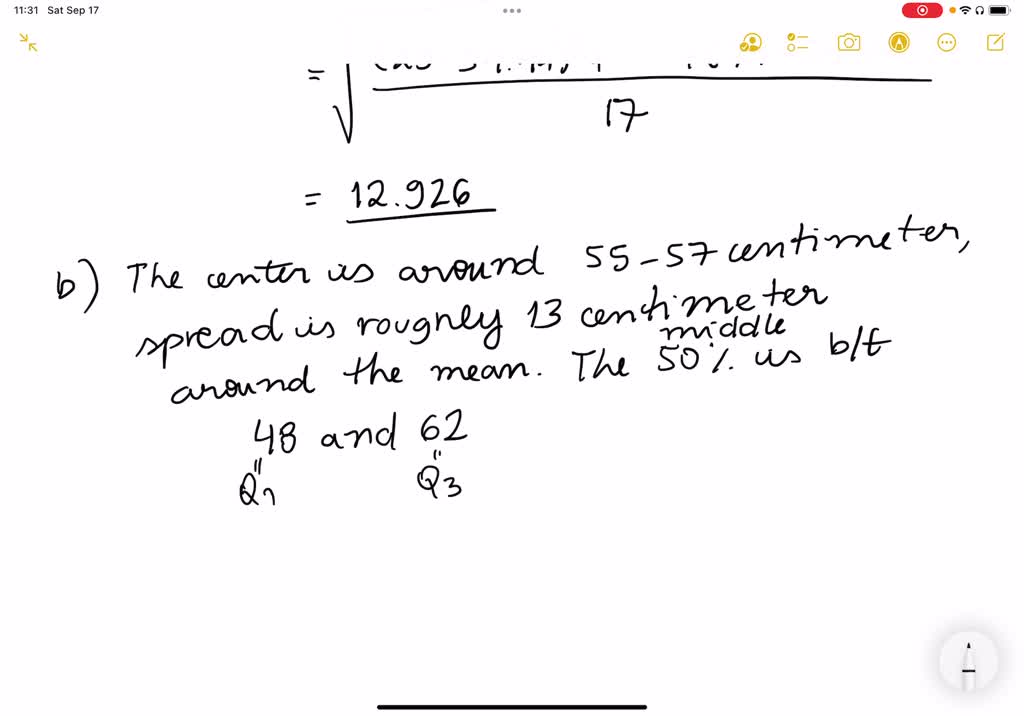 11:31 Sat Sep 17
=
17
= 12.926
b) The center is around 55-57 centimeter,
spread is roughly 13 centimeter
middle
around the mean. The 50% is b/t
48 and 62
" "
Q1 Q3